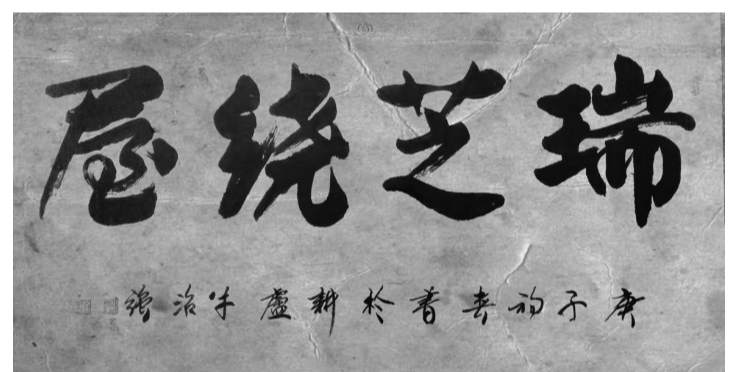 瑞芝绕屋
庚子初春書於耕盧牛治强